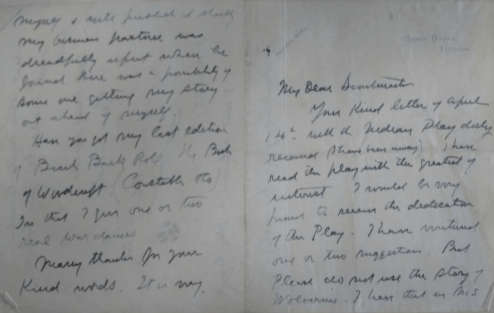 My Dear
Your Kind letter of April
14th with the Indian Play duly
received (I have been away). I have
read the play with the greatest of
interest I would be very
proud to receive the dedication
of the Play. I have ventured
one or two suggestions. But
Please do not use the Story of
Wolverine. I have that in M.S.
myself & will publish it should
My business partner was
dreadfully upset when he
found there was a possibility of
some one getting my story
out ahead of myself.
Have you got my last edition
of Birch Bark Roll The Book
of Woodcraft (Constable & Co)
In that I give one or two
real war dances
Many thanks for your
Kind words. It is my